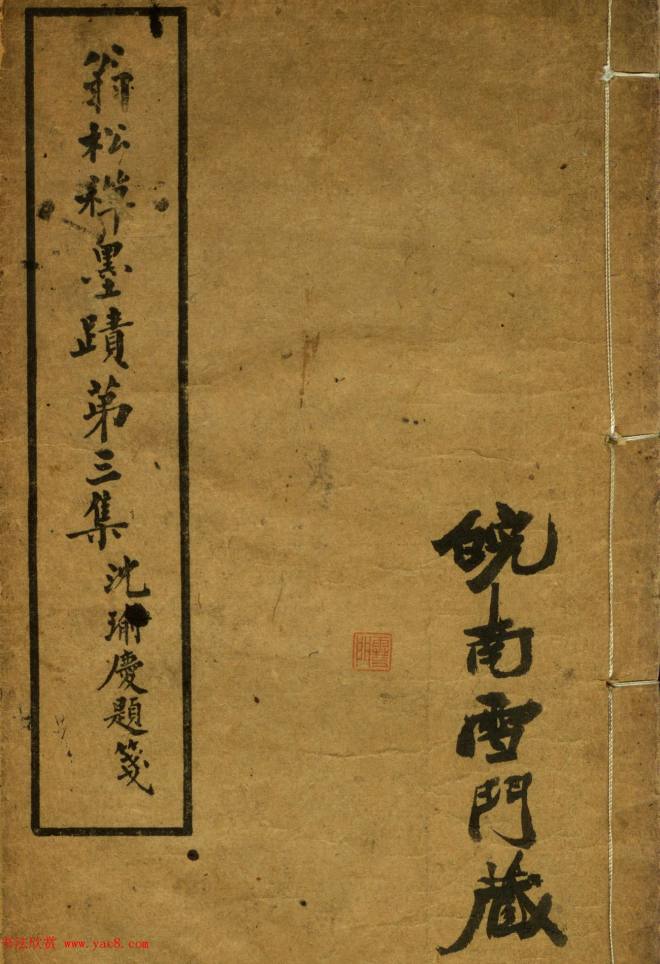 皖南雪門藏
翁松禪墨蹟第三集
沈瑜慶題箋
書法欣赏 www.yac8.com